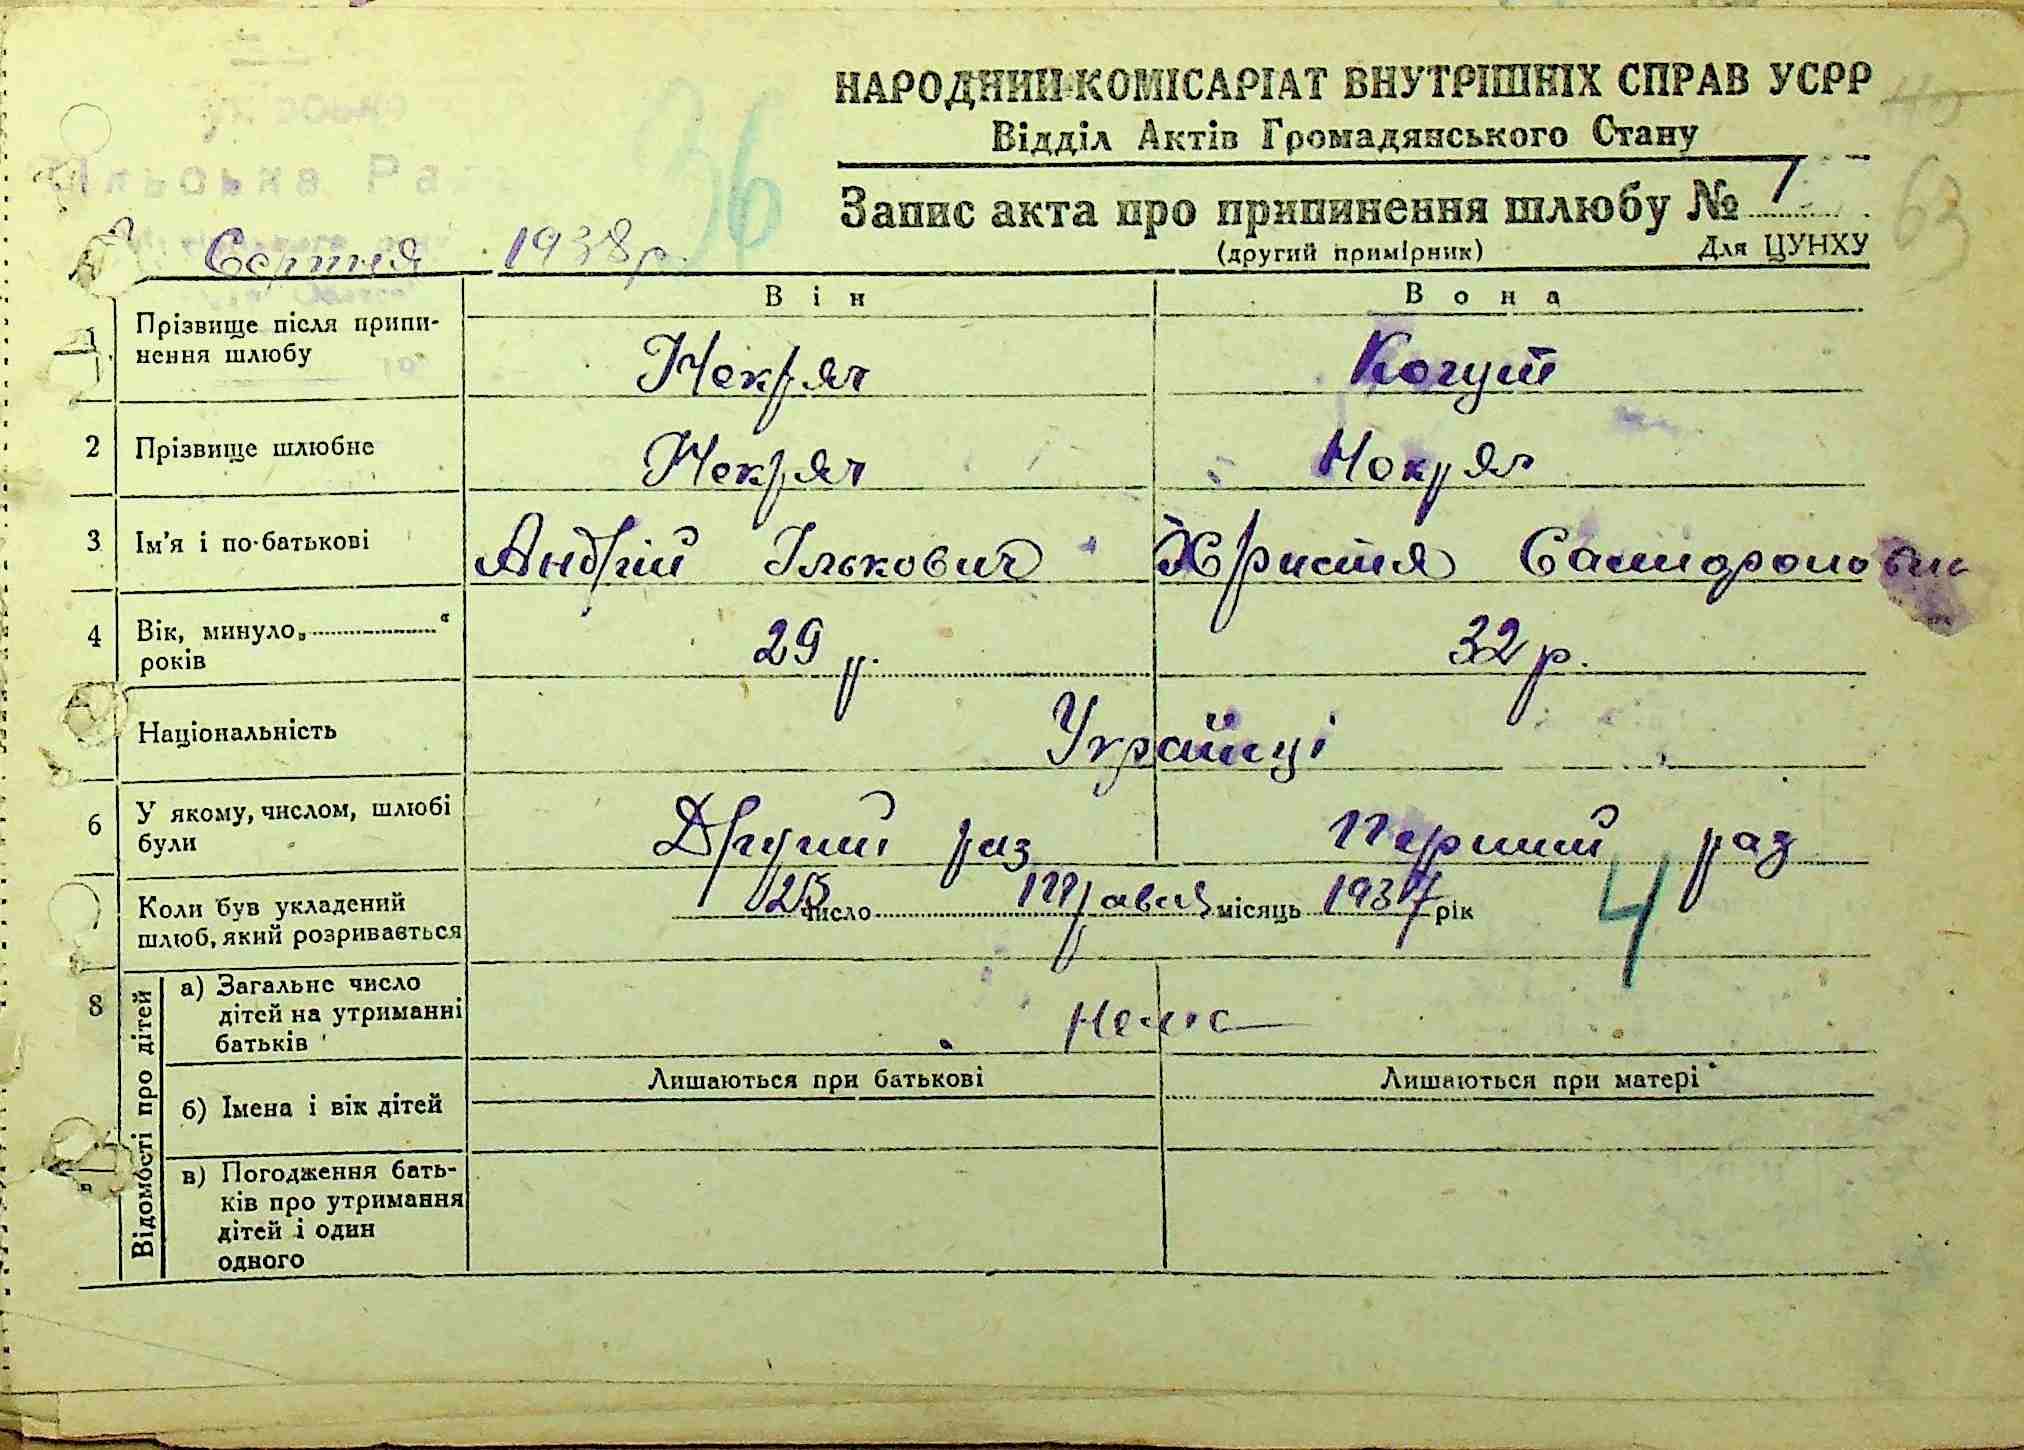 НАРОДНИЙ КОМІСАРІАТ ВНУТРІШНІХ СПРАВ УСРР
Відділ Актів Громадянського Стану
36
63
Запис акта про припинення шлюбу № 1
(другий примірник) Для ЦУНХУ
Серпня 1938 р.
Він Вона
1 Прізвище після припи-
нення шлюбу Некряч Когут
2 Прізвище шлюбне Некряч Некряч
3 Ім'я і по-батькові Андрій Ількович Христя
4 Вік, минуло „ “
років 29 р. 32 р.
Національність Українці
6 У якому, числом, шлюбі
були Другий раз Перший раз
Коли був укладений
шлюб, який розривається 25 число Травня місяць 1937 рік 4
8 Відомості про дітей
а) Загальне число
дітей на утриманні
батьків Немає
Лишаються при батькові Лишаються при матері
б) Імена і вік дітей
в) Погодження бать-
ків про утримання
дітей і один
одного